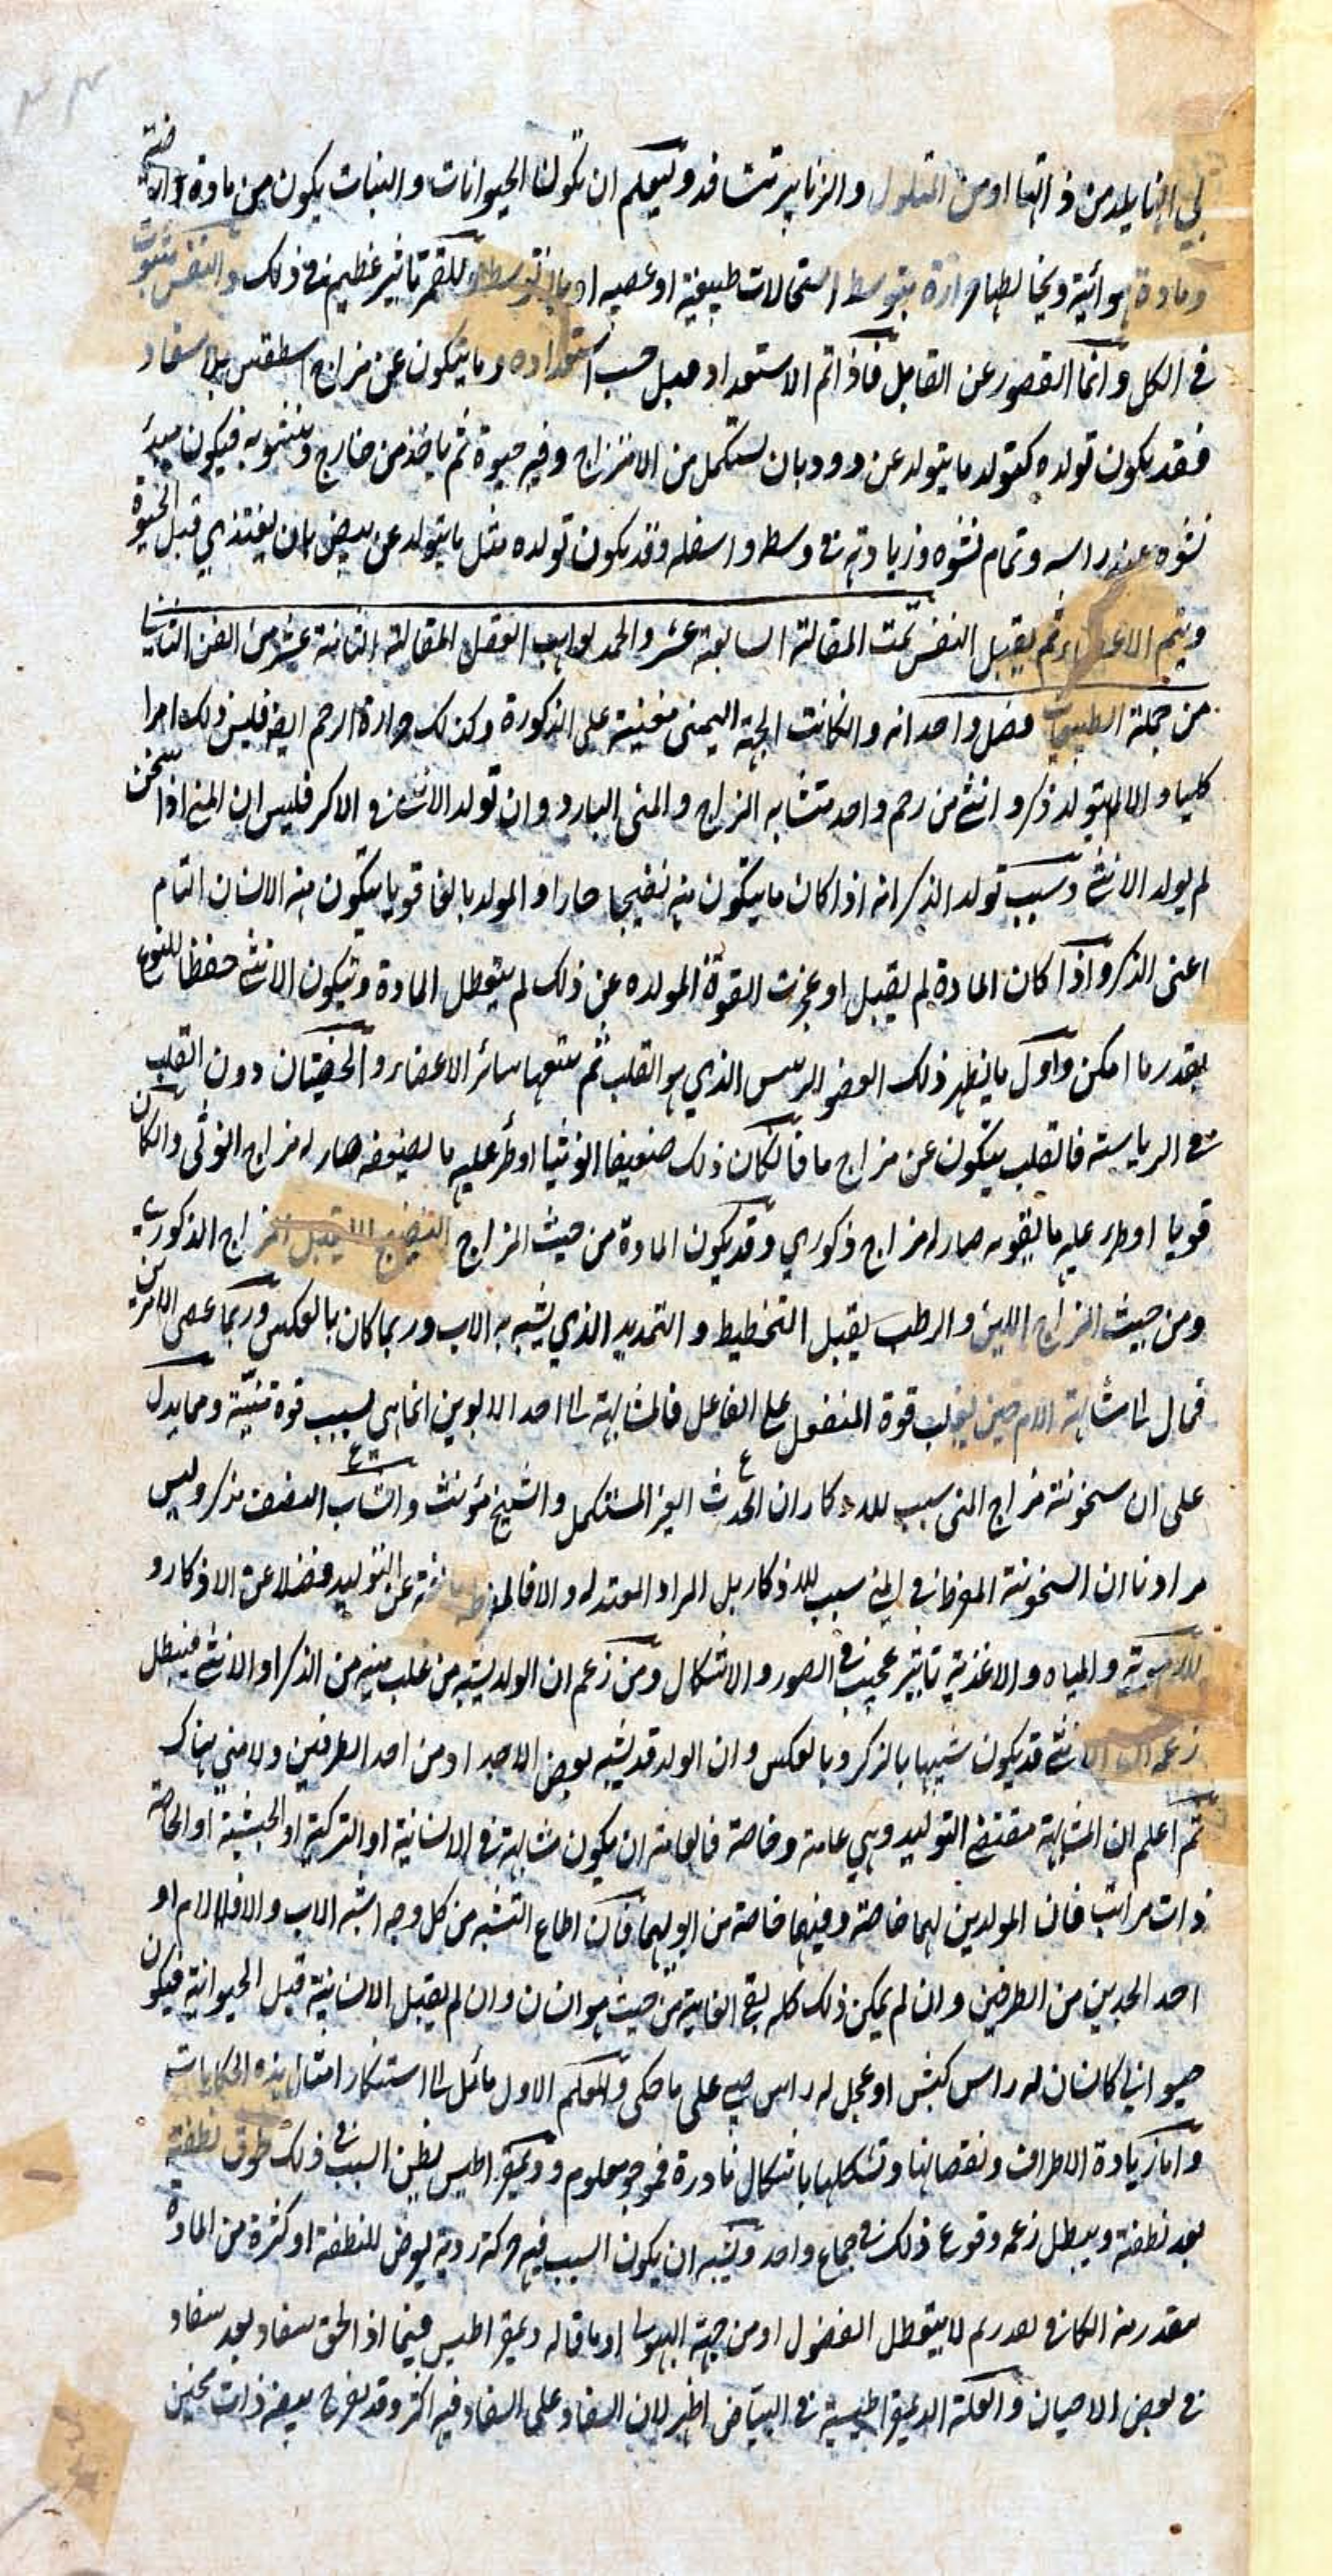 او من التلول والزنابير تتسافد وليعلم ان تكون الحيوانات والنبات يكون من مادة ارضية
ومادة هوائية ويخالطها حرارة بتوسط استحالات طبيعية او عصيه او بلا توسط وللقمر تاثير عظيم في ذلك والنفس مبثوث
في الكل وانما القصور عن القابل فاذا تم الاستعداد قبل حسب استعداده وما يتكون عن مزاج اسطقس بلا سفاد
فقد يكون تولده كتولد ما يتولد عن دود بان يستكمل من الامتزاج وفيه حيوة ثم ياخذ من خارج وينشو به فيكون مبدئ
نشوه عند راسه وتمام نشوه وزيادته في وسطه واسفله وقد يكون تولده مثل ما يتولد عن بيض بان يغتذي قبل الحيوة
ويتم الاعضاء ثم يقبل النفس تمت المقالة السابعة عشر والحمد لواهب العقل المقالة الثامنة عشر من الفن الثامن
من جملة الطبيعيات فصل واحد انه وان كانت الجهة اليمنى معينة على الذكورة وكذلك حرارة الرحم ايض فليس ذلك امرا
كليا والا لم يتولد ذكر وانثى من رحم واحد متشابه المزاج والمنى البارد وان تولد الانثى في الاكثر فليس ان المنى اذا سخن
لم يولد الانثى وسبب تولد الذكر انه اذا كان ما يتكون منه نضيجا حارا والمولد بالغا قويا يتكون منه الانسان التام
اعنى الذكر واذا كان المادة لم يقبل او عجزت القوة المولده عن ذلك لم يتعطل المادة وتيكون الانثى حفظا للنوع
بقدر ما امكن واول ما يظهر ذلك العضو الرئيس الذي هو القلب ثم يتبعها سائر الاعضاء والخصيتان دون القلب
في الرياسة فالقلب يتكون عن مزاج ما فان كان ذلك ضعيفا انوثيا او طرأ عليه ما يضعفه صار له مزاج انوثى وان كان
قويا او طرء عليه ما يقويه صار له مزاج ذكوري وقد يكون المادة من حيث المزاج النضيج لا يقبل المزاج الذكوري
ومن حيث المزاج اللين والرطب يقبل التخطيط والتمديد الذي يشبه به الاب وربما كان بالعكس وربما عصى الامرين
فمال الى مشابهة الام حين يغلب قوة المنفعل على الفاعل فالمشابهة الى احد الابوين انما هي بسبب قوة منيّة ومما يدل
على ان سخونة مزاج المنى سبب للاذكار ان الحدث الغير المستكمل والشيخ مؤنث والشاب المنضف مذكر وليس
مرادنا ان السخونة المفرطة في المنى سبب للاذكار بل المراد المعتدله والا فالمفرطة مانعة عن التوليد فضلا عن الاذكار و
للاهوية والمياه والاغذية تاثير عجيب في الصور والاشكال ومن زعم ان الولد يشبه من غلب منيه من الذكر او الانثى فيبطل
زعمه ان الانثى قد يكون شبيها بالذكر وبالعكس وان الولد قد يشبه بعض الاجداد من احد الطرفين ولا منى هناك
ثم اعلم ان المشابهة مقتضى التوليد وهي عامة وخاصة فالعامة ان يكون مشابهة في الانسانية او التركية او الحبشية او الخاصة
ذات مراتب فان المولدين لهما خاصة وفيهما خاصة من ابويهما فان اطاع التشبه من كل وجه اشبه الاب والا فالام او
احد الجدين من الطرفين وان لم يمكن ذلك كله بقى الغاية من حيث هو انسان وان لم يقبل الانسانية قبل الحيوانية فيكون
حيوانى كانسان له راس كبش او عجل له راس صبى على ما حكى والمعلم الاول مائل الى استنكار امثال هذه الحكايات
واما زيادة الاطراف ونقصانها وتشكلها باشكال نادرة فموجود معلوم وديمقراطيس يظن السبب في ذلك طروق نطفة
بعد نطفة ويبطل زعمه وقوع ذلك في جماع واحد ويشبه ان يكون السبب فيه حركة ردية يعرض للنطفة او كثرة من المادة
لا يتعطل الفضول او من جهة الهيولى او ما قاله ديمقراطيس فيما اذا لحق سفاد بعد سفاد
في بعض الاحيان والعلة الديمقراطيسية في البيّاض اظهر لان السفاد على السفاد فيه اكثر وقد يعرض بيضة ذات محّين